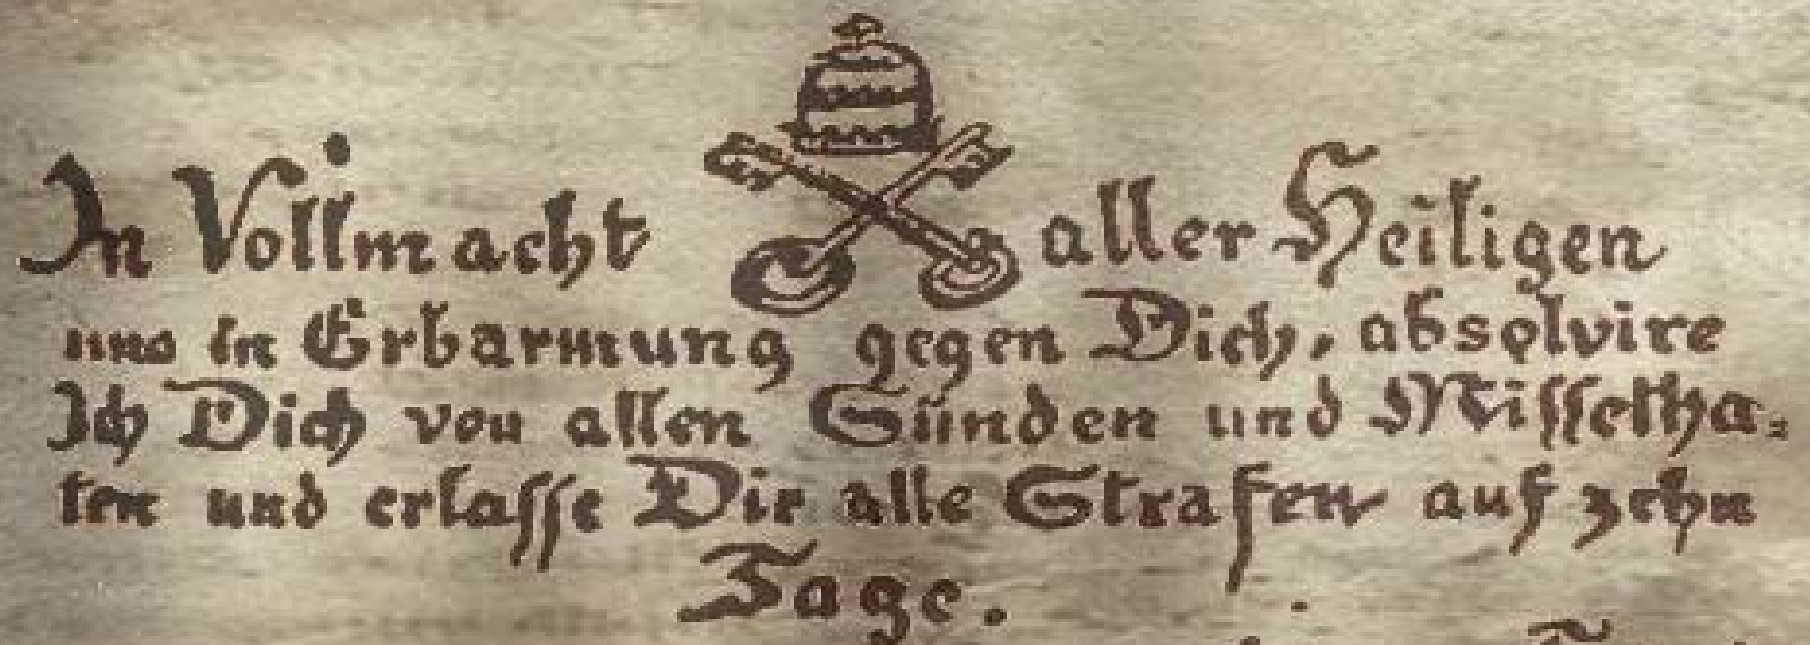 In Vollmacht aller Heiligen
und in Erbarmung gegen Dich, absolvire
Ich Dich von allen Sünden und Missetha=
ten und erlasse Dir alle Strafen auf zehn
Tage.